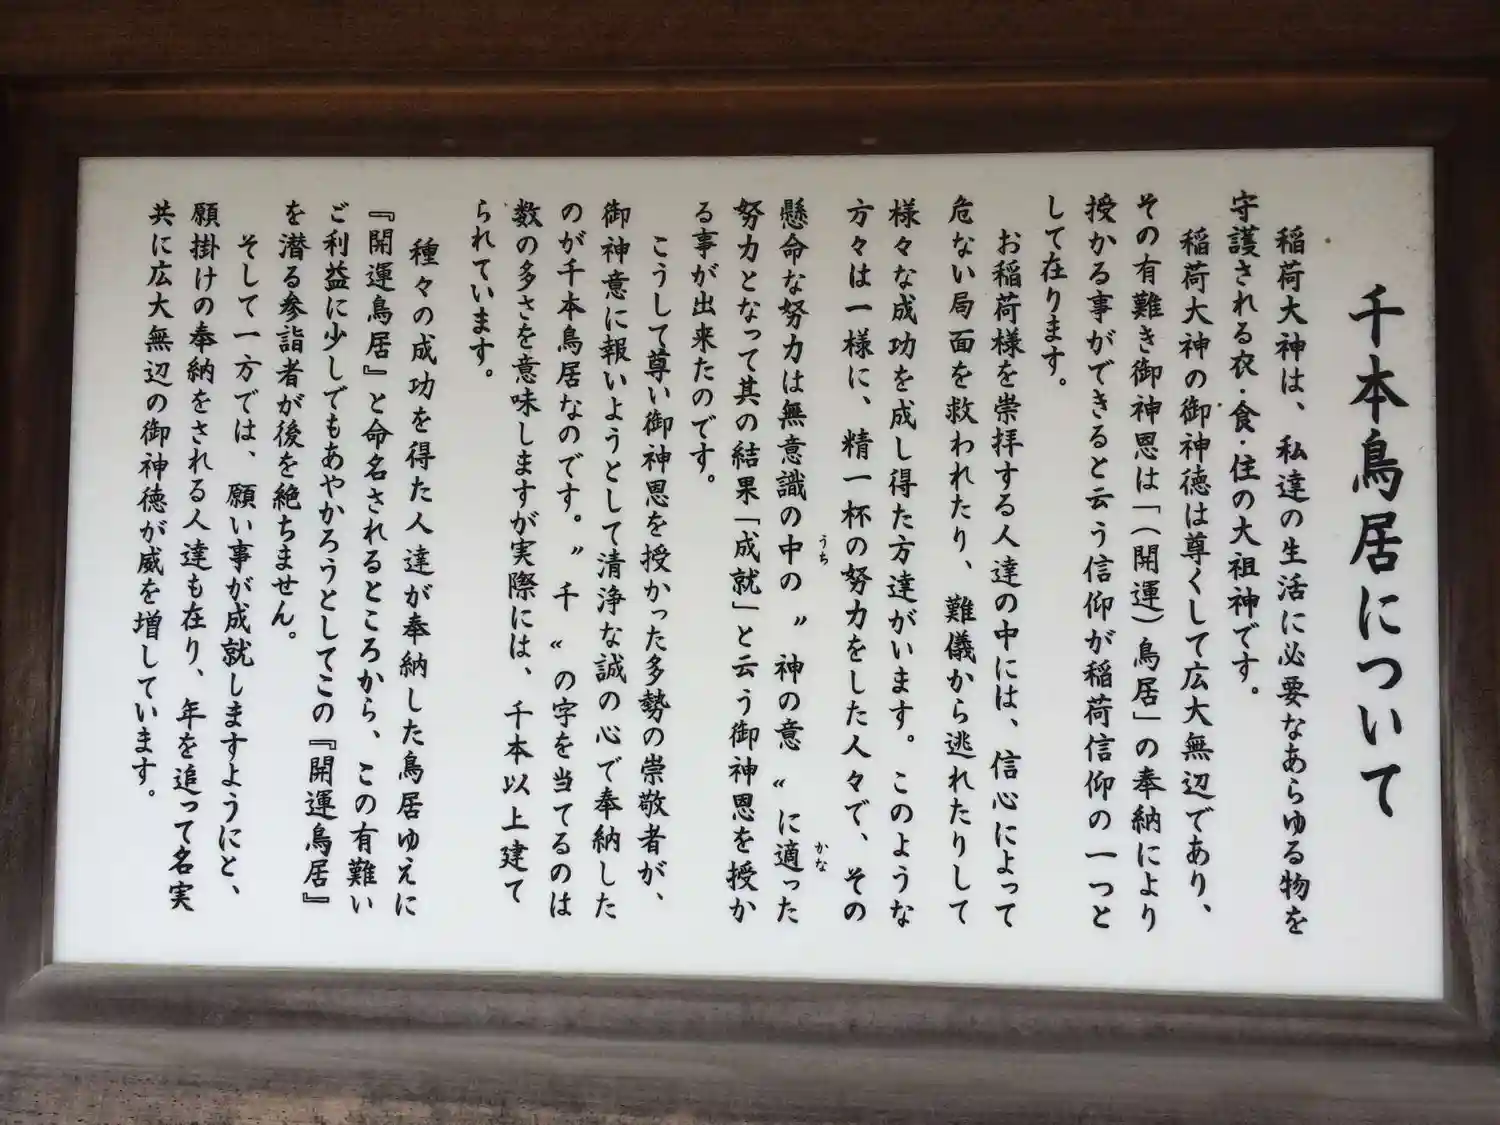 千本鳥居について
稲荷大神は、私達の生活に必要なあらゆる物を
守護される衣・食・住の大祖神です。
稲荷大神の御神徳は尊くして広大無辺であり、
その有難き御神恩は「(開運)鳥居」の奉納により
授かる事ができると云う信仰が稲荷信仰の一つと
して在ります。
お稲荷様を崇拝する人達の中には、信心によって
危ない局面を救われたり、難儀から逃れたりして
様々な成功を成し得た方達がいます。このような
方々は一様に、精一杯の努力をした人々で、その
懸命な努力は無意識の中うちの〃神の意〃に適かなった
努力となって其の結果「成就」と云う御神恩を授か
る事が出来たのです。
こうして尊い御神恩を授かった多勢の崇敬者が、
御神意に報いようとして清浄な誠の心で奉納した
のが千本鳥居なのです。〃千〃の字を当てるのは
数の多さを意味しますが実際には、千本以上建て
られています。
種々の成功を得た人達が奉納した鳥居ゆえに
『開運鳥居』と命名されるところから、この有難い
ご利益に少しでもあやかろうとしてこの『開運鳥居』
を潜る参詣者が後を絶ちません。
そして一方では、願い事が成就しますようにと、
願掛けの奉納をされる人達も在り、年を追って名実
共に広大無辺の御神徳が威を増しています。